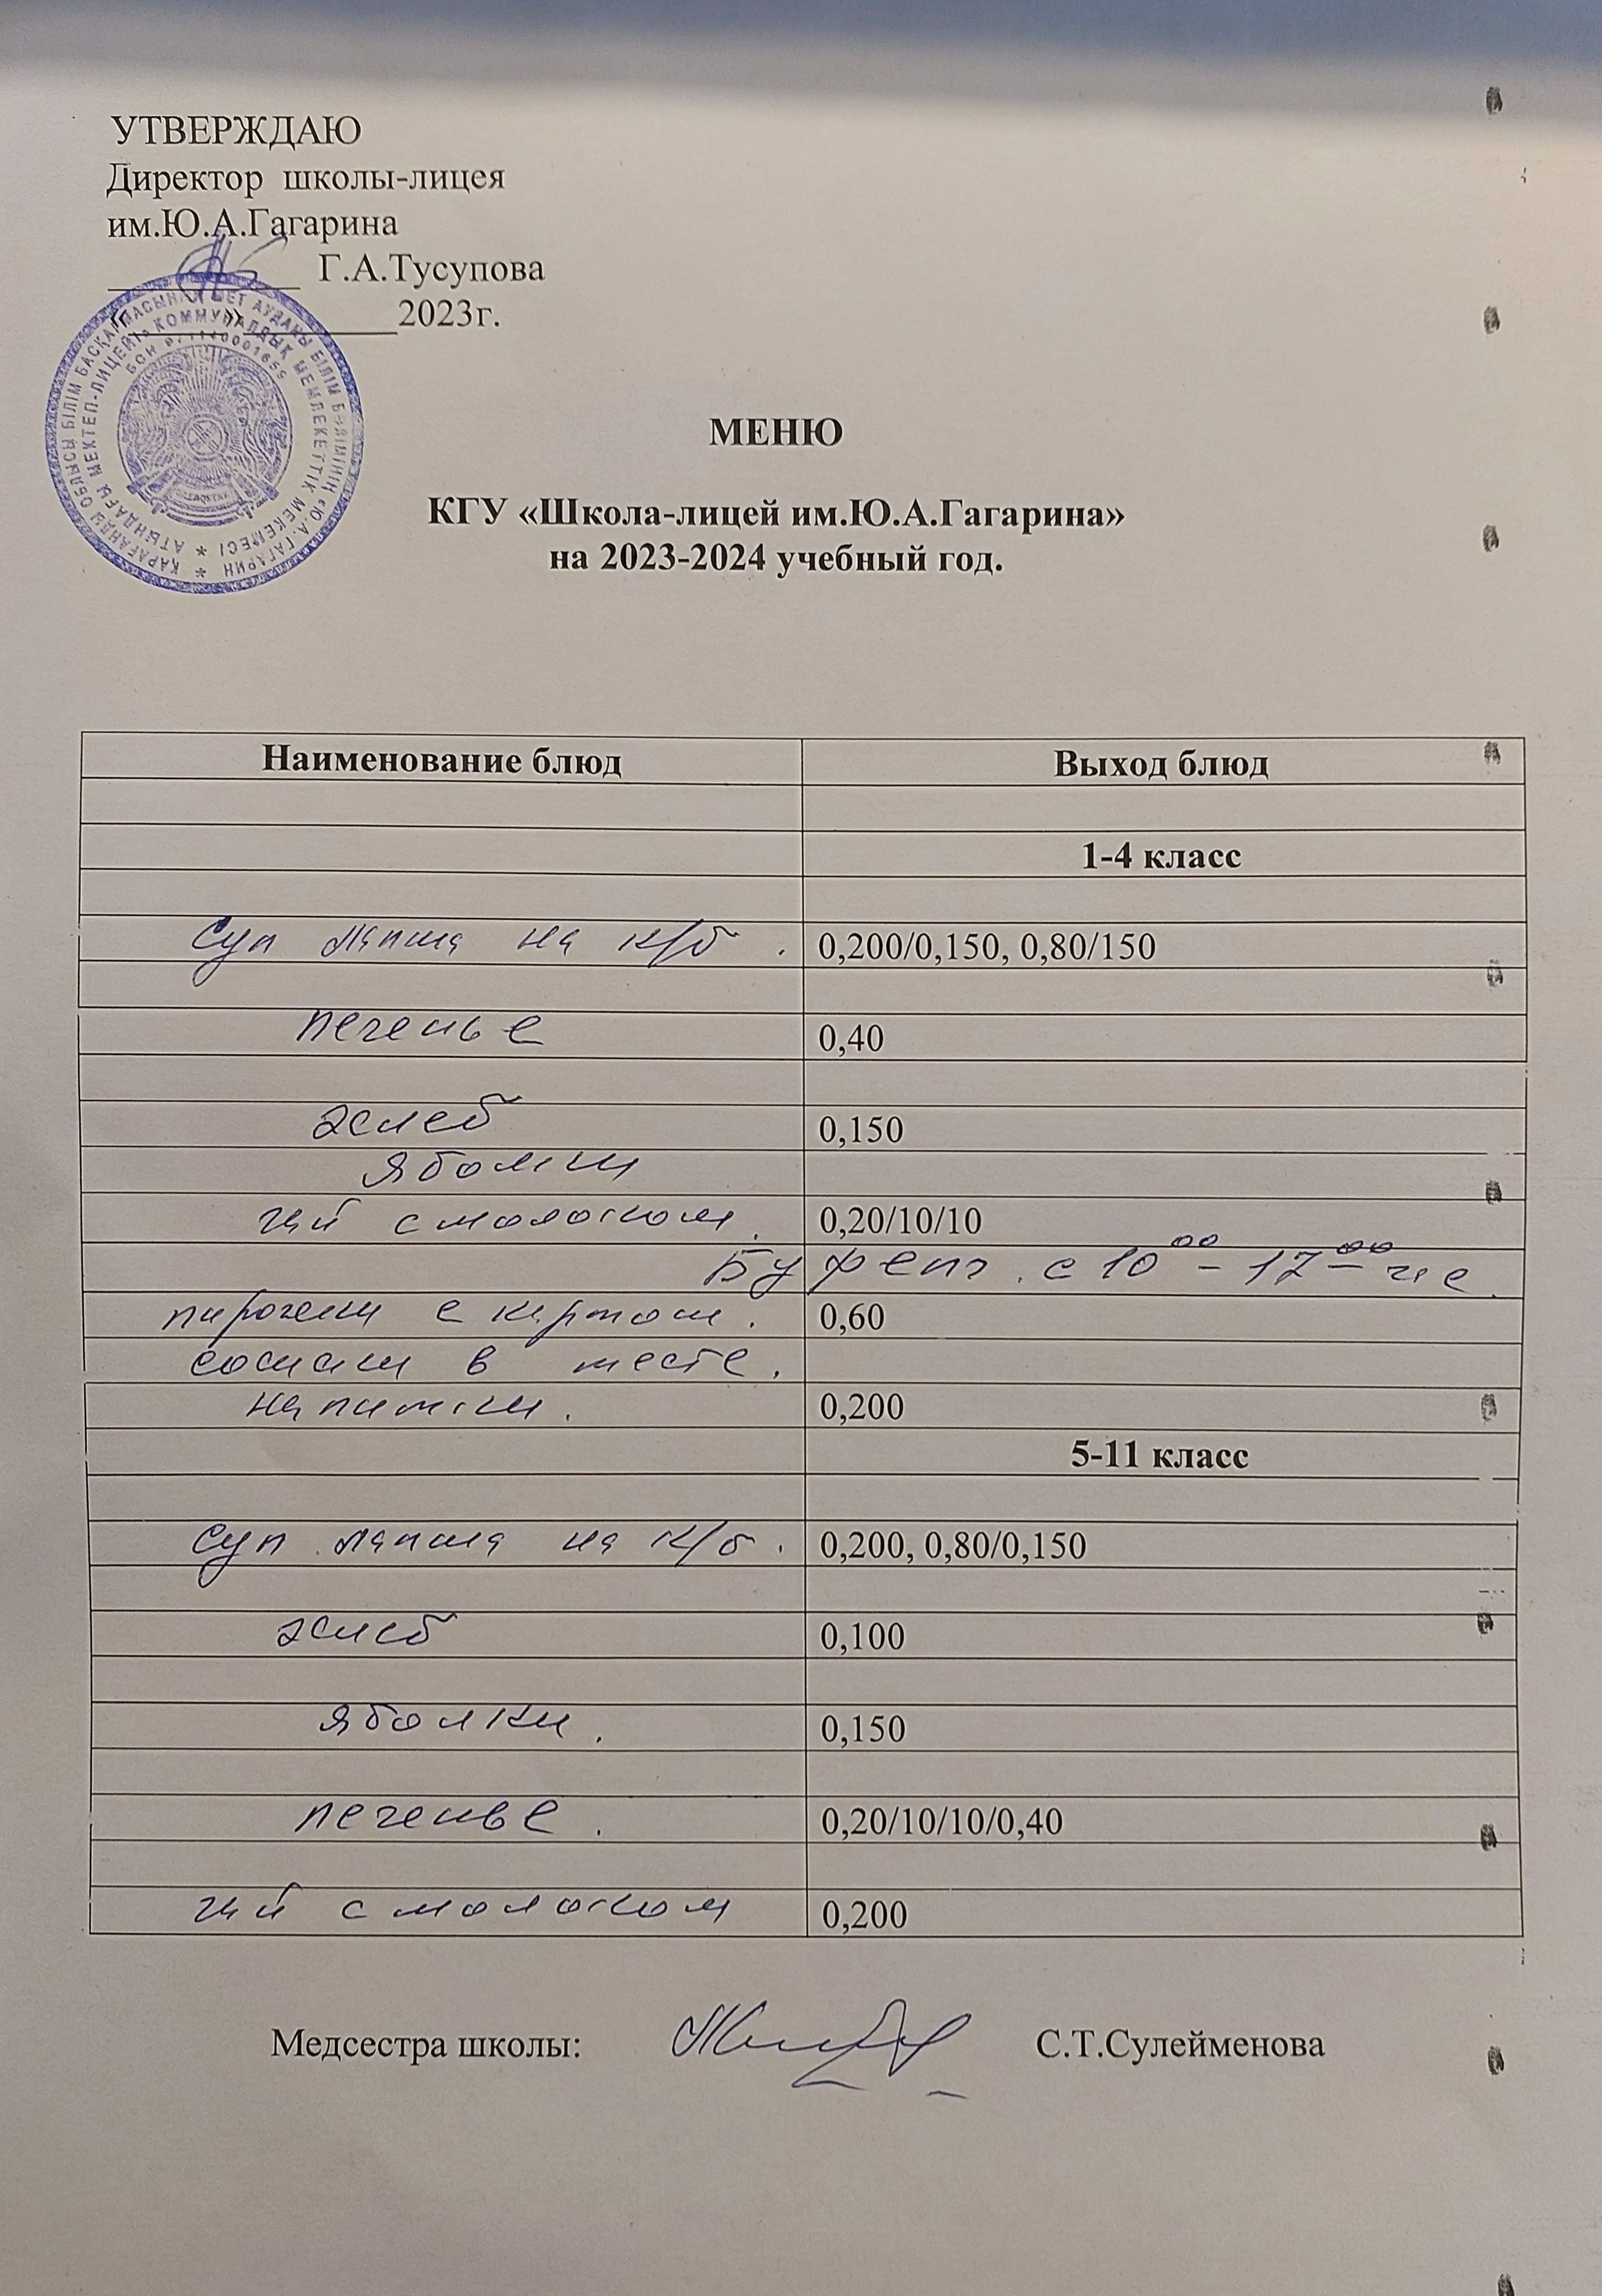 УТВЕРЖДАЮ
Директор школы-лицея
им.Ю.А.Гагарина
__________ Г.А.Тусупова
«______»________2023г.
ҚАРАҒАНДЫ ОБЛЫСЫ БІЛІМ БАСҚАРМАСЫНЫҢ ШЕТ АУДАНЫ БІЛІМ БӨЛІМІНІҢ «Ю.А. ГАГАРИН
АТЫНДАҒЫ МЕКТЕП-ЛИЦЕЙІ» КОММУНАЛДЫҚ МЕМЛЕКЕТТІК МЕКЕМЕСІ
МЕНЮ
КГУ «Школа-лицей им.Ю.А.Гагарина»
на 2023-2024 учебный год.
Наименование блюд Выход блюд
1-4 класс
Суп лапша на к/б. 0,200/0,150, 0,80/150
печенье 0,40
хлеб 0,150
яблоки
чай с молоком. 0,20/10/10
Буфет. с 10 00 - 17 00
пирожки с картош. 0,60
сосиски в тесте.
напитки. 0,200
5-11 класс
Суп лапша на к/б. 0,200, 0,80/0,150
хлеб 0,100
яблоки. 0,150
печенье. 0,20/10/10/0,40
чай с молоком 0,200
Медсестра школы: С.Т.Сулейменова